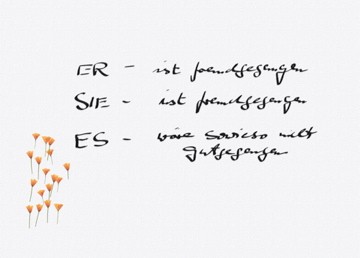 ER - ist fremdgegangen
SIE - ist fremdgegangen
ES - wäre sowieso nicht
gutgegangen